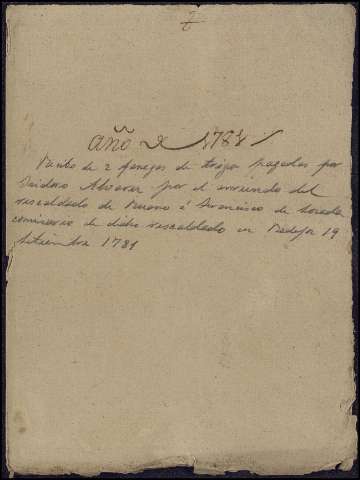 7
año de 1781
Recibo de 2 fanegas de trigo pagadas por
Isidoro Alvarez por el arriendo del
rescaldado de Bueno á Francisco de
comisario de dicho rescaldado en 19
Setiembre 1781